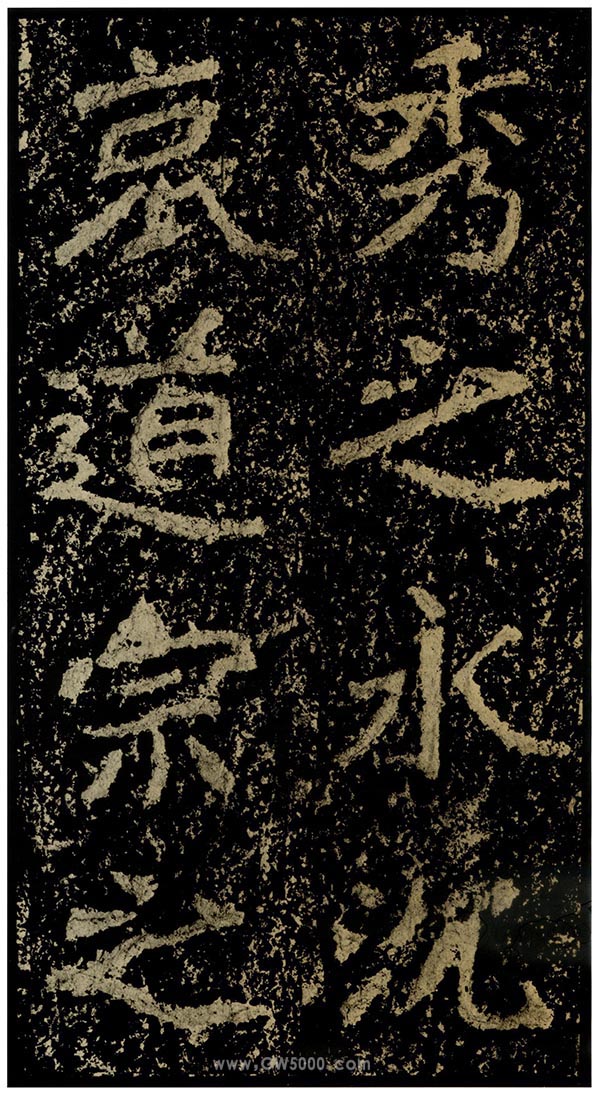 秀之永沉
哀道宗之
www.GW5000.com